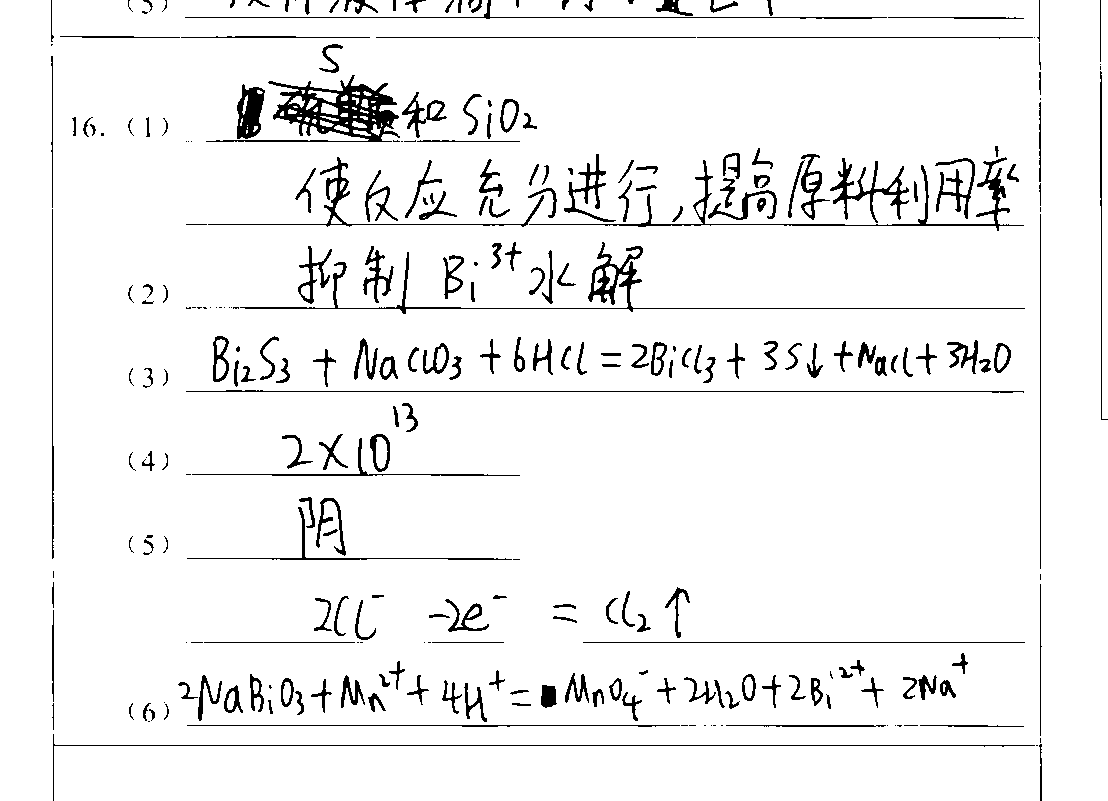 (3)
16. (1) S 和 SiO₂
使反应充分进行,提高原料利用率
(2) 抑制 Bi³⁺水解
(3) Bi₂S₃ + NaClO₃ + 6HCl = 2BiCl₃ + 3S↓ + NaCl + 3H₂O
(4) 2×10¹³
(5) 阴
2Cl⁻ -2e⁻ = Cl₂↑
(6) 2NaBiO₃ + Mn²⁺ + 4H⁺ = MnO₄⁻ + 2H₂O + 2Bi²⁺ + 2Na⁺